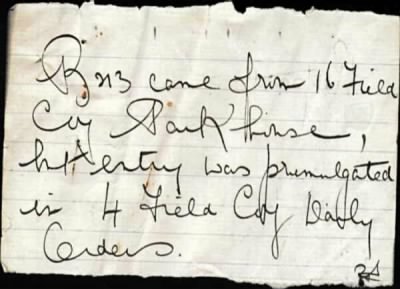 B213 came from 16 Field
Coy Parkhouse,
entry was promulgated
in 4 Field Coy Daily
Orders.